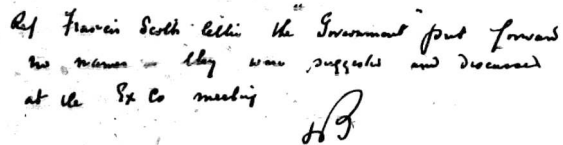 Ref Francis Scott's letter the "Government" put forward
no names – they were suggested and discussed
at the Ex Co meeting